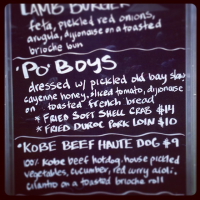 LAMB BURGER
feta, pickled red onions,
arugula, dijonaise on a toasted
brioche bun
"PO' BOYS
dressed w/ pickled old bay slaw
cayenne honey, sliced tomato, dijonaise
on toasted french bread
* FRIED SOFT SHELL CRAB $14
* FRIED DUROC PORK LOIN $10
*KOBE BEEF HAUTE DOG $9
100% Kobe beef hotdog, house pickled
vegetables, cucumber, red curry aioli,
cilantro on a toasted brioche roll